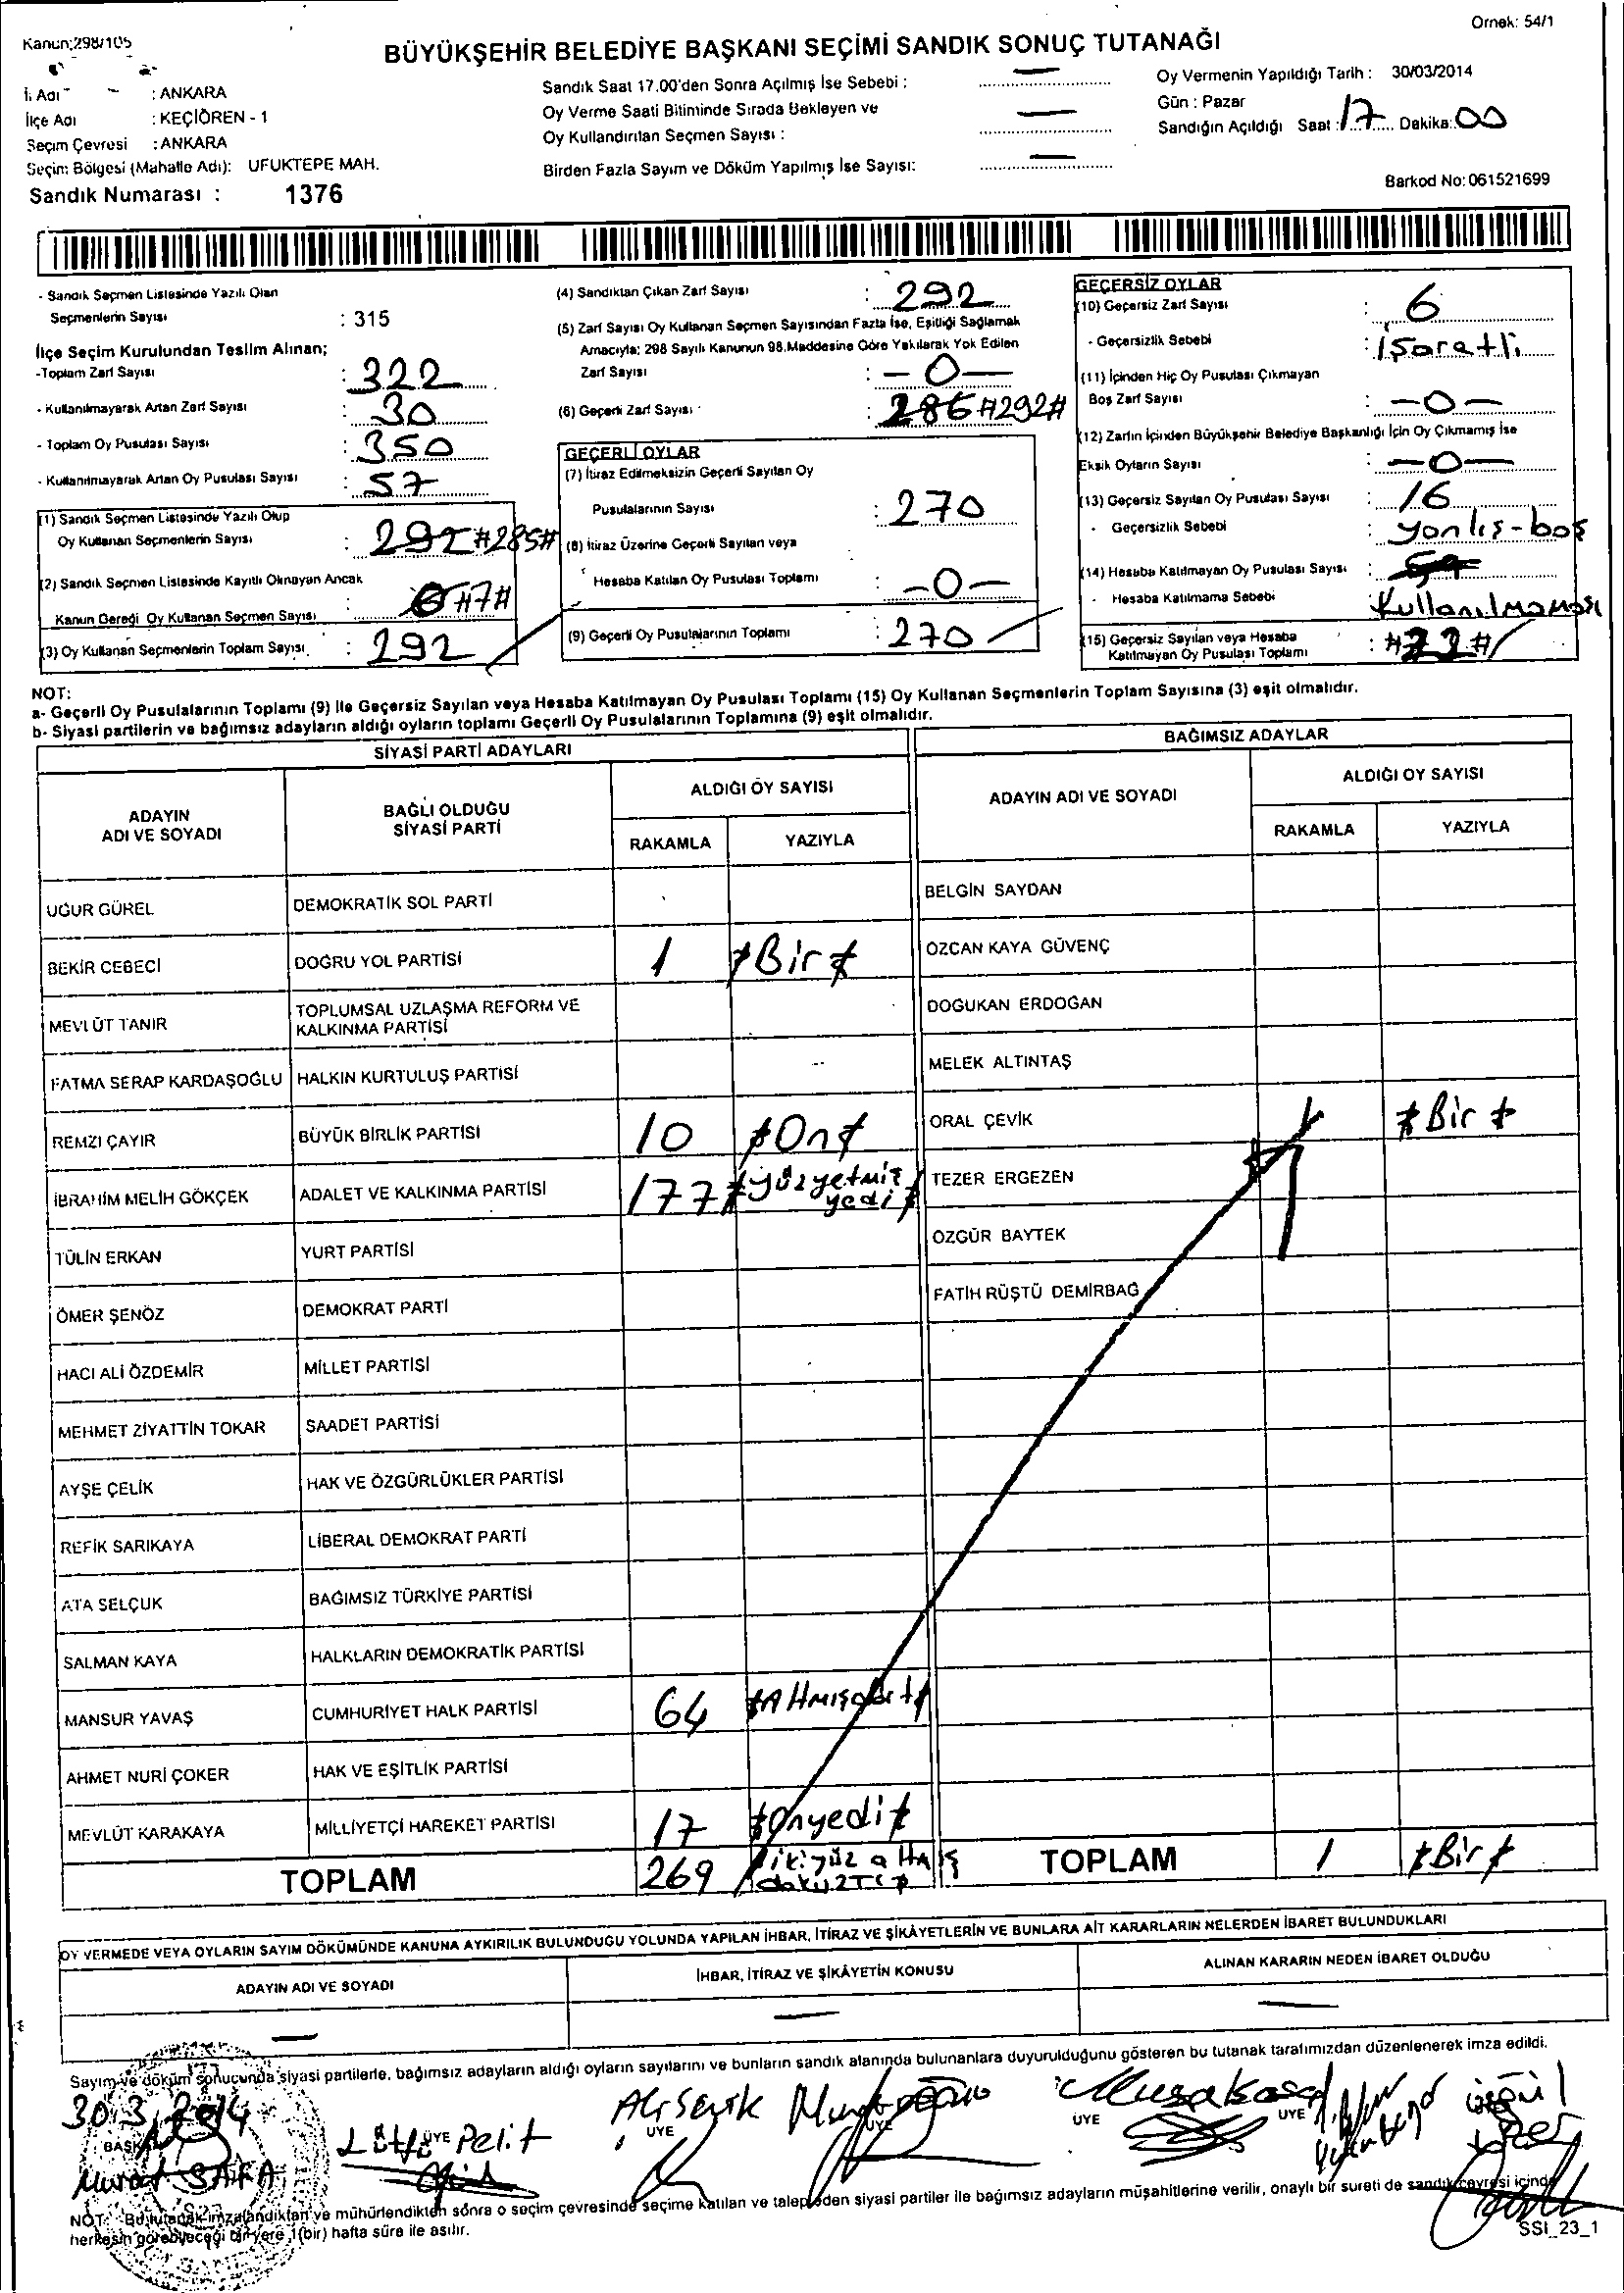 Kanun:298/105
Örnek: 54/1
BÜYÜKŞEHİR BELEDİYE BAŞKANI SEÇİMİ SANDIK SONUÇ TUTANAĞI
İl Adı : ANKARA
İlçe Adı : KEÇİÖREN - 1
Seçim Çevresi : ANKARA
Seçim Bölgesi (Mahalle Adı): UFUKTEPE MAH.
Sandık Numarası : 1376
Sandık Saat 17.00'den Sonra Açılmış İse Sebebi : —
Oy Verme Saati Bitiminde Sırada Bekleyen ve
Oy Kullandırılan Seçmen Sayısı : —
Birden Fazla Sayım ve Döküm Yapılmış İse Sayısı: —
Oy Vermenin Yapıldığı Tarih : 30/03/2014
Gün : Pazar
Sandığın Açıldığı Saat : 17 Dakika: 00
Barkod No: 061521699
- Sandık Seçmen Listesinde Yazılı Olan
Seçmenlerin Sayısı : 315
İlçe Seçim Kurulundan Teslim Alınan;
-Toplam Zarf Sayısı : 322
- Kullanılmayarak Artan Zarf Sayısı : 30
- Toplam Oy Pusulası Sayısı : 350
- Kullanılmayarak Artan Oy Pusulası Sayısı : 57
(1) Sandık Seçmen Listesinde Yazılı Olup
Oy Kullanan Seçmenlerin Sayısı : 292 #285#
(2) Sandık Seçmen Listesinde Kayıtlı Olmayan Ancak
Kanun Gereği Oy Kullanan Seçmen Sayısı : #7#
(3) Oy Kullanan Seçmenlerin Toplam Sayısı : 292
(4) Sandıktan Çıkan Zarf Sayısı : 292
(5) Zarf Sayısı Oy Kullanan Seçmen Sayısından Fazla İse, Eşitliği Sağlamak
Amacıyla; 298 Sayılı Kanunun 98.Maddesine Göre Yakılarak Yok Edilen
Zarf Sayısı : -0-
(6) Geçerli Zarf Sayısı : 286 #292#
GEÇERLİ OYLAR
(7) İtiraz Edilmeksizin Geçerli Sayılan Oy
Pusulalarının Sayısı : 270
(8) İtiraz Üzerine Geçerli Sayılan veya
Hesaba Katılan Oy Pusulası Toplamı : -0-
(9) Geçerli Oy Pusulalarının Toplamı : 270
GEÇERSİZ OYLAR
(10) Geçersiz Zarf Sayısı : 6
- Geçersizlik Sebebi : işaretli
(11) İçinden Hiç Oy Pusulası Çıkmayan
Boş Zarf Sayısı : -0-
(12) Zarfın İçinden Büyükşehir Belediye Başkanlığı İçin Oy Çıkmamış İse
Eksik Oyların Sayısı : -0-
(13) Geçersiz Sayılan Oy Pusulası Sayısı : 16
- Geçersizlik Sebebi : yanlış-boş
(14) Hesaba Katılmayan Oy Pusulası Sayısı :
- Hesaba Katılmama Sebebi : Kullanılmaması
(15) Geçersiz Sayılan veya Hesaba
Katılmayan Oy Pusulası Toplamı : #22#
NOT:
a- Geçerli Oy Pusulalarının Toplamı (9) İle Geçersiz Sayılan veya Hesaba Katılmayan Oy Pusulası Toplamı (15) Oy Kullanan Seçmenlerin Toplam Sayısına (3) eşit olmalıdır.
b- Siyasi partilerin ve bağımsız adayların aldığı oyların toplamı Geçerli Oy Pusulalarının Toplamına (9) eşit olmalıdır.
SİYASİ PARTİ ADAYLARI
ADAYIN ADI VE SOYADI
BAĞLI OLDUĞU SİYASİ PARTİ
ALDIĞI OY SAYISI
RAKAMLA YAZIYLA
UĞUR GÜREL DEMOKRATİK SOL PARTİ
BEKİR CEBECİ DOĞRU YOL PARTİSİ 1 #Bir#
MEVLÜT TANIR TOPLUMSAL UZLAŞMA REFORM VE
KALKINMA PARTİSİ
FATMA SERAP KARDAŞOĞLU HALKIN KURTULUŞ PARTİSİ
REMZİ ÇAYIR BÜYÜK BİRLİK PARTİSİ 10 #On#
İBRAHİM MELİH GÖKÇEK ADALET VE KALKINMA PARTİSİ 177 #yüzyetmiş
yedi#
TÜLİN ERKAN YURT PARTİSİ
ÖMER ŞENÖZ DEMOKRAT PARTİ
HACI ALİ ÖZDEMİR MİLLET PARTİSİ
MEHMET ZİYATTİN TOKAR SAADET PARTİSİ
AYŞE ÇELİK HAK VE ÖZGÜRLÜKLER PARTİSİ
REFİK SARIKAYA LİBERAL DEMOKRAT PARTİ
ATA SELÇUK BAĞIMSIZ TÜRKİYE PARTİSİ
SALMAN KAYA HALKLARIN DEMOKRATİK PARTİSİ
MANSUR YAVAŞ CUMHURİYET HALK PARTİSİ 64 #Altmışdört#
AHMET NURİ ÇOKER HAK VE EŞİTLİK PARTİSİ
MEVLÜT KARAKAYA MİLLİYETÇİ HAREKET PARTİSİ 17 #Onyedi#
TOPLAM 269 #ikiyüz altmış
dokuz#
BAĞIMSIZ ADAYLAR
ADAYIN ADI VE SOYADI
ALDIĞI OY SAYISI
RAKAMLA YAZIYLA
BELGİN SAYDAN
ÖZCAN KAYA GÜVENÇ
DOĞUKAN ERDOĞAN
MELEK ALTINTAŞ
ORAL ÇEVİK 1 #Bir#
TEZER ERGEZEN
ÖZGÜR BAYTEK
FATİH RÜŞTÜ DEMİRBAĞ
TOPLAM 1 #Bir#
OY VERMEDE VEYA OYLARIN SAYIM DÖKÜMÜNDE KANUNA AYKIRILIK BULUNDUĞU YOLUNDA YAPILAN İHBAR, İTİRAZ VE ŞİKÂYETLERİN VE BUNLARA AİT KARARLARIN NELERDEN İBARET BULUNDUKLARI
ADAYIN ADI VE SOYADI İHBAR, İTİRAZ VE ŞİKÂYETİN KONUSU ALINAN KARARIN NEDEN İBARET OLDUĞU
— — —
Sayım ve döküm sonucunda siyasi partilerle, bağımsız adayların aldığı oyların sayılarını ve bunların sandık alanında bulunanlara duyurulduğunu gösteren bu tutanak tarafımızdan düzenlenerek imza edildi.
30.3.2014
BAŞKAN ÜYE ÜYE ÜYE ÜYE ÜYE
Murat SAFA
Lütfü Pelit
NOT: Bu tutanak imzalandıktan ve mühürlendikten sonra o seçim çevresinde seçime katılan ve talep eden siyasi partiler ile bağımsız adayların müşahitlerine verilir, onaylı bir sureti de sandık çevresi içinde
herkesin görebileceği bir yere 1(bir) hafta süre ile asılır.
SSI_23_1